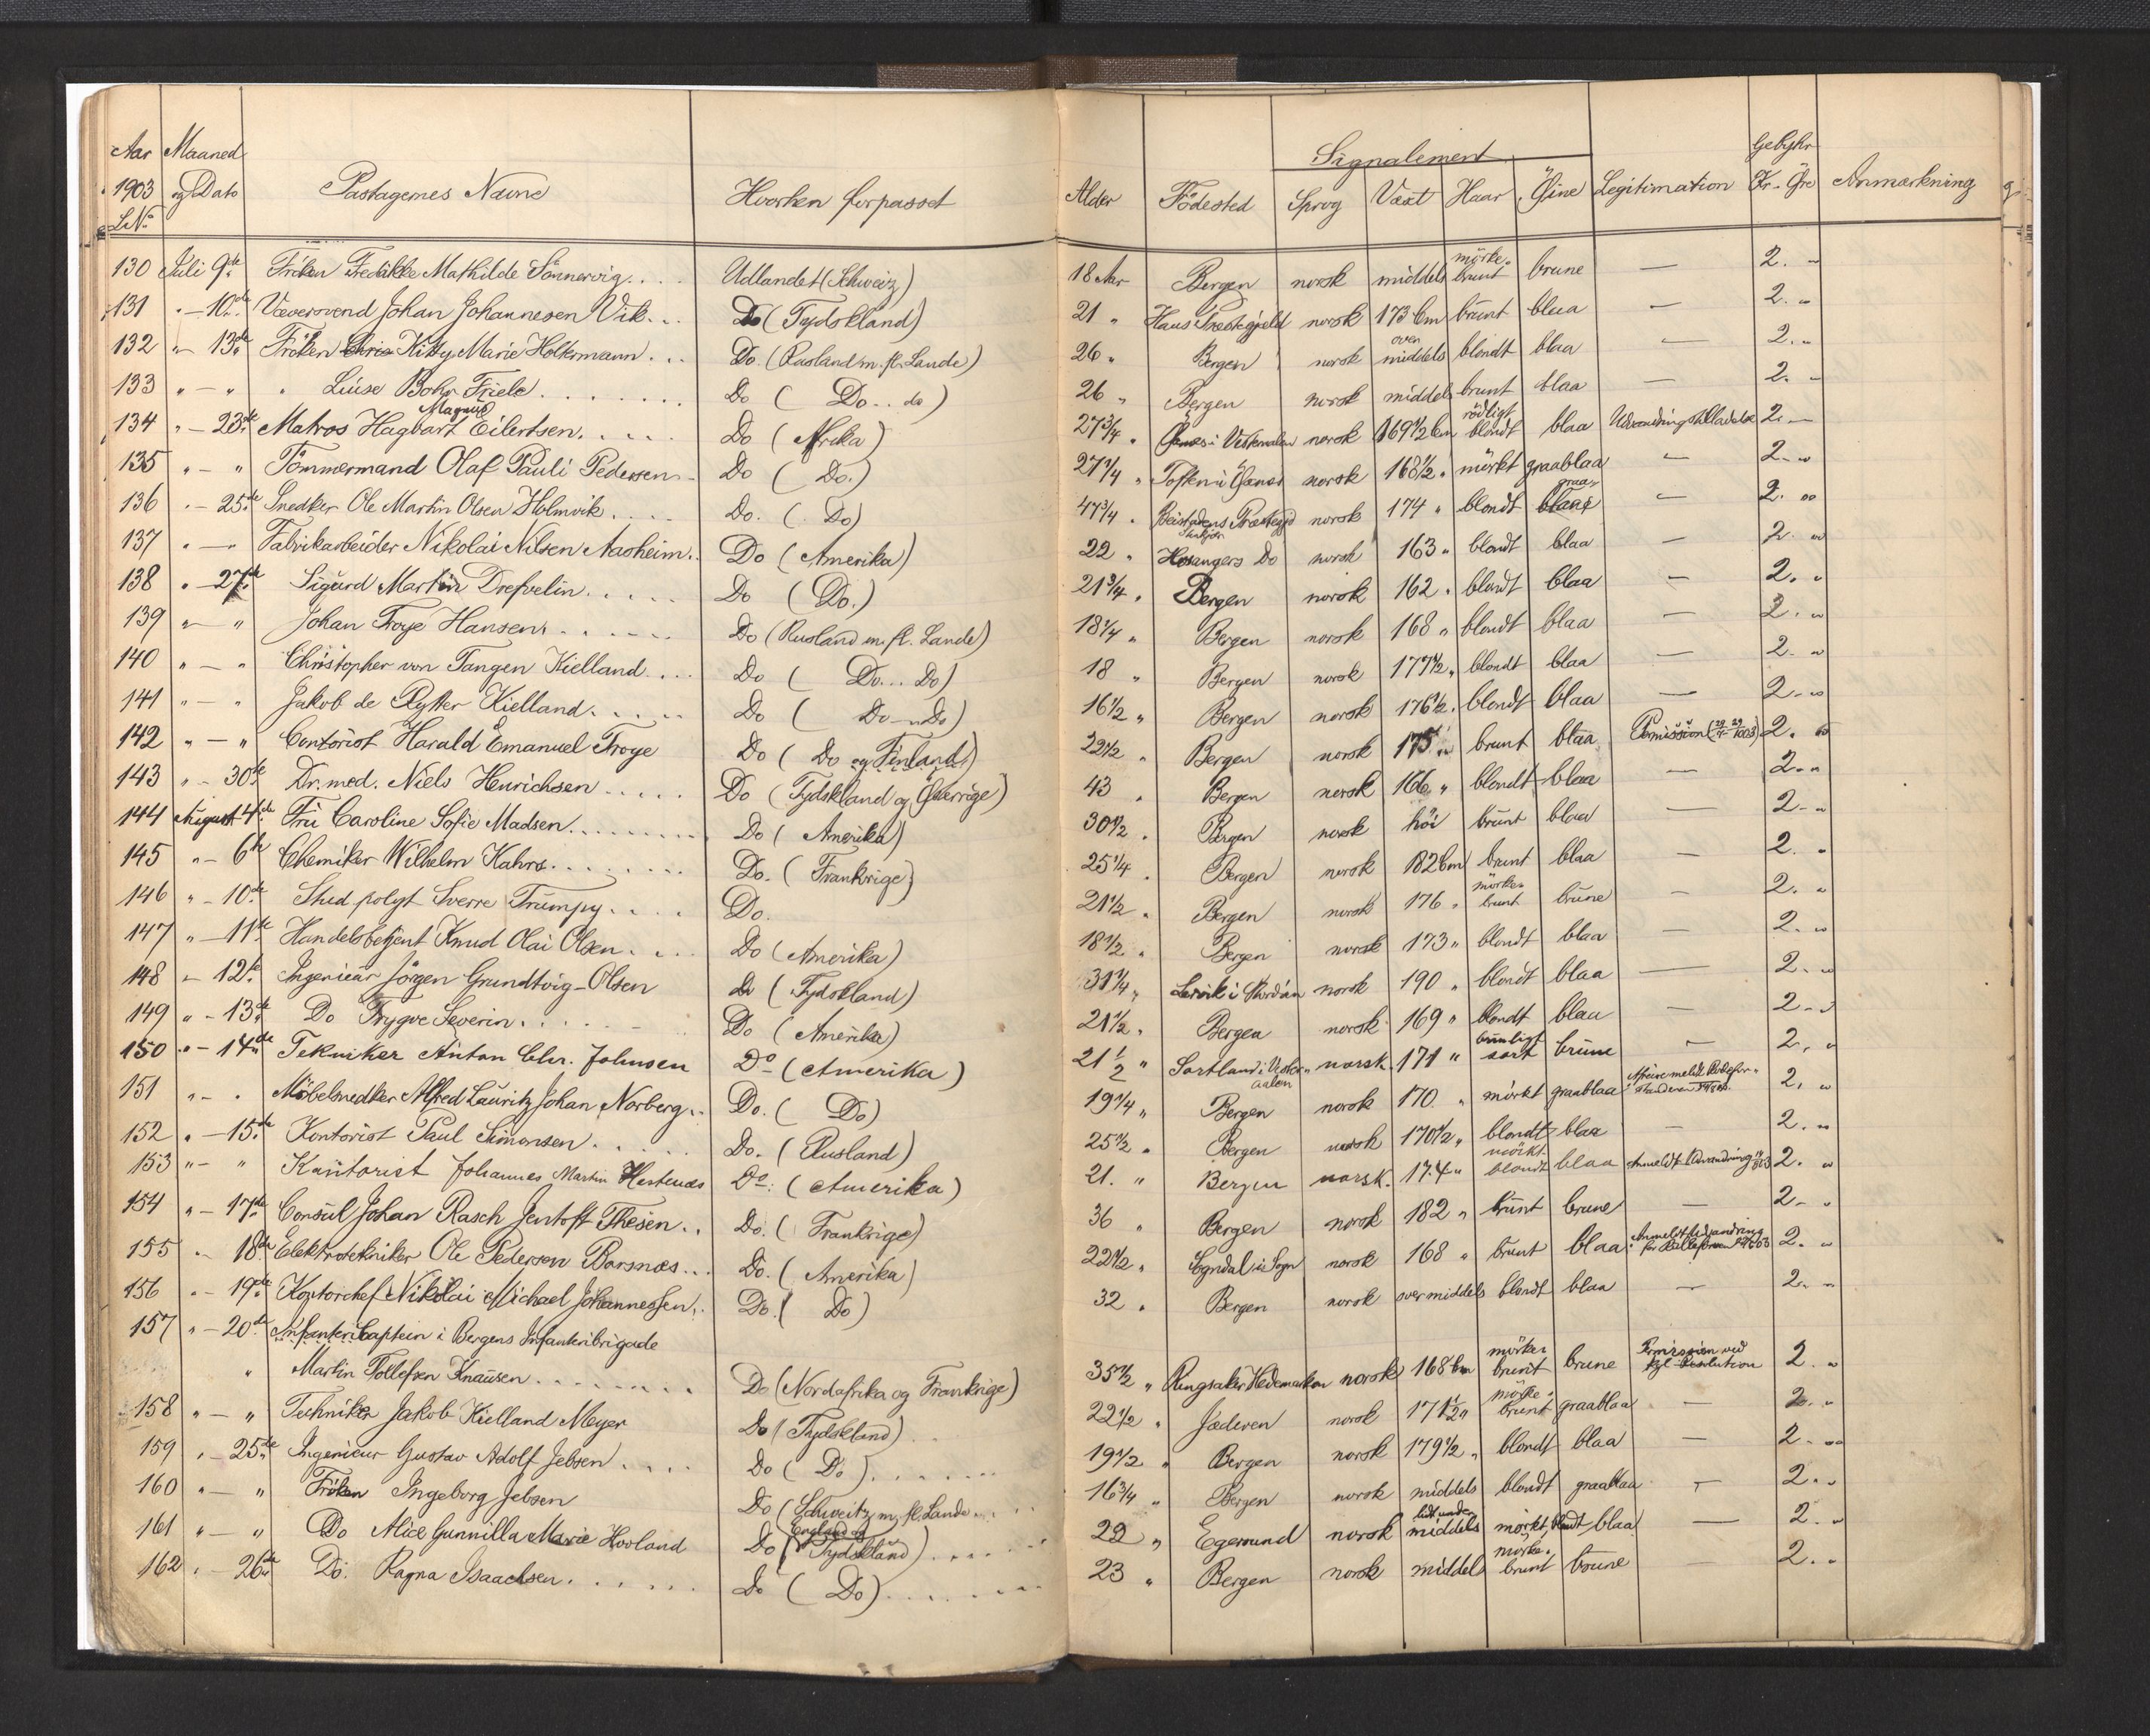 Aar Maaned Signalement Gebyhr
1903 og Dato Passagernes Navne Hvorhen forpasset Alder Födested Sprog Vaxt Haar Öine Legitimation Kr. Øre Anmærkning
L.No.
130 Juli 9de Fröken Fredrikke Mathilde Sönnervig.... Udlandet (Schweiz) 18 Aar Bergen norsk middels mörke brunt brune — 2. "
131 " — 10de Væversvend Johan Johannesen Vik... Do (Tydskland) 21 " Haus Præstegjeld norsk 173 Cm brunt blaa — 2. "
132 " — 13de Fröken Kitty Marie Holtermann... Do. (Rusland m. fl. Lande) 26 " Bergen norsk over middels blondt blaa — 2. "
133 " — " " Luise Bohr Friele........ Do ( Do... do) 26 " Bergen norsk middels brunt blaa — 2. "
134 " — 23de Matros Hagbart Magnus Eilertsen..... Do (Afrika) 27 3/4 " norsk 169 1/2 Cm rödligt blondt blaa Udvandringstilladelse 2. —
135 " — " Tömmermand Olaf Pauli Pedersen.. Do ( Do.) 27 1/4 " norsk 168 1/2 " mörkt graablaa — 2. "
136 " — 25de Snedker Ole Martin Olsen Holmvik.... Do. ( Do) 47 3/4 " norsk 174 " blondt graa — 2. "
137 " — " Fabrikarbeider Nikolai Nilsen Aasheim.. Do (Amerika) 22 " Hosangers Do norsk 163 " blondt blaa — 2. "
138 " — 27de Sigurd Martin Drefvelin..... Do (Do.) 21 3/4 " Bergen norsk 162 " blondt blaa — 2. "
139 " — " Johan Troye Hansen....... Do (Rusland m. fl. Lande) 18 1/4 " Bergen norsk 168 " blondt blaa — 2. "
140 " — " Christopher von Tangen Kielland.... Do ( Do... Do) 18 " Bergen norsk 177 1/2 " blondt blaa — 2. "
141 " — " Jakob de Rytter Kielland..... Do ( Do — Do) 16 1/2 " Bergen norsk 176 1/2 " blondt blaa — 2. "
142 " — " Contorist Harald Emanuel Troye Do ( Do og Finland) 22 1/2 " Bergen norsk 175 " brunt blaa Permission 2. "
143 " — 30te Dr. med. Niels Henrichsen..... Do (Tydskland og Sverrige) 43 " Bergen norsk 166 " blondt blaa — 2. "
144 August 4de Fru Caroline Sofie Madsen......... Do (Amerika) 30 1/2 " Bergen norsk höi brunt blaa — 2. "
145 " — 6te Chemiker Wilhelm Kahrs........ Do. (Frankrige) 25 1/4 " Bergen norsk 182 Cm brunt blaa — 2. "
146 " — 10de Stud. polyt Sverre Trumpy.... Do. 21 1/2 " Bergen norsk 176 " mörke brunt brune — 2. "
147 " — 11te Handelsbetjent Knud Olai Olsen.... Do (Amerika) 18 1/2 " Bergen norsk 173 " blondt blaa — 2. "
148 " — 12te Ingeniør Jörgen Grundtvig-Olsen do (Tydskland) 31 1/4 " Lervik i norsk 190 " blondt blaa — 2. "
149 " — 13de Do Trygve Severin...... Do (Amerika) 21 1/2 " Bergen norsk 169 " blondt blaa — 2. "
150 " — 14de Tekniker Anton Chr. Johnsen Do (Amerika) 21 1/2 " Sortland i Vesteraalen norsk 171 " brunligt sort brune — 2. "
151 " — " Möbelsnedker Alfred Lauritz Johan Norberg.. Do. ( Do) 19 1/4 " Bergen norsk 170 " mörkt graablaa 2. "
152 " — 15de Kontorist Paul Simonsen...... Do. (Rusland) 25 1/2 " Bergen norsk 170 1/2 " blondt blaa — 2. "
153 " — " Kontorist Johannes Martin Hestenæs Do: (Amerika) 21. " Bergen norsk. 174 " mörkt blondt blaa Anmeldt Udvandring 2. "
154 " — 17de Consul Johan Rasch Jentoft Thesen.. Do. (Frankrige) 36 " Bergen norsk 182 " brunt brune — 2. "
155 " — 18de Elektrotekniker Ole Pedersen Borsnæs... Do. (Amerika) 22 1/2 " Sogndal i Sogn norsk 168 " brunt blaa Anmeldt Udvandring 2. "
156 " — 19de Kontorchef Nikolai Michael Johannessen.. Do. ( Do) 32 " Bergen norsk over middels blondt blaa — 2. "
157 " — 20de InfanteriCaptein i Bergens Infanteribrigade
" Martin Tollefsen Knausen......... Do (Nordafrika og Frankrige) 35 1/2 " Ringsaker Hedemarken norsk 168 Cm mörke brunt brune Permission ved Kgl. Resolution 2. "
158 " — " Tekniker Jakob Kielland Meyer Do (Tydskland) 22 1/2 " Jæderen norsk 171 1/2 " mörke brunt graablaa — 2. "
159 " — 25de Ingenieur Gustav Adolf Jebsen.... Do ( Do)....... 19 1/2 " Bergen norsk 179 1/2 " blondt blaa — 2. "
160 " — " Fröken Ingeborg Jebsen Do (Schweitz m. fl. Lande 16 3/4 " Bergen norsk middels blondt graablaa — 2. "
161 " — " Do Alice Gunnilla Marie Hovland Do (England og Tydskland)..... 22 " Egersund norsk lidt under middels mörkt blondt blaa — 2. "
162 " — 26de Do: Ragna Isaachsen....... do ( Do)....... 23 " Bergen norsk middels mörke brunt brune — 2. "